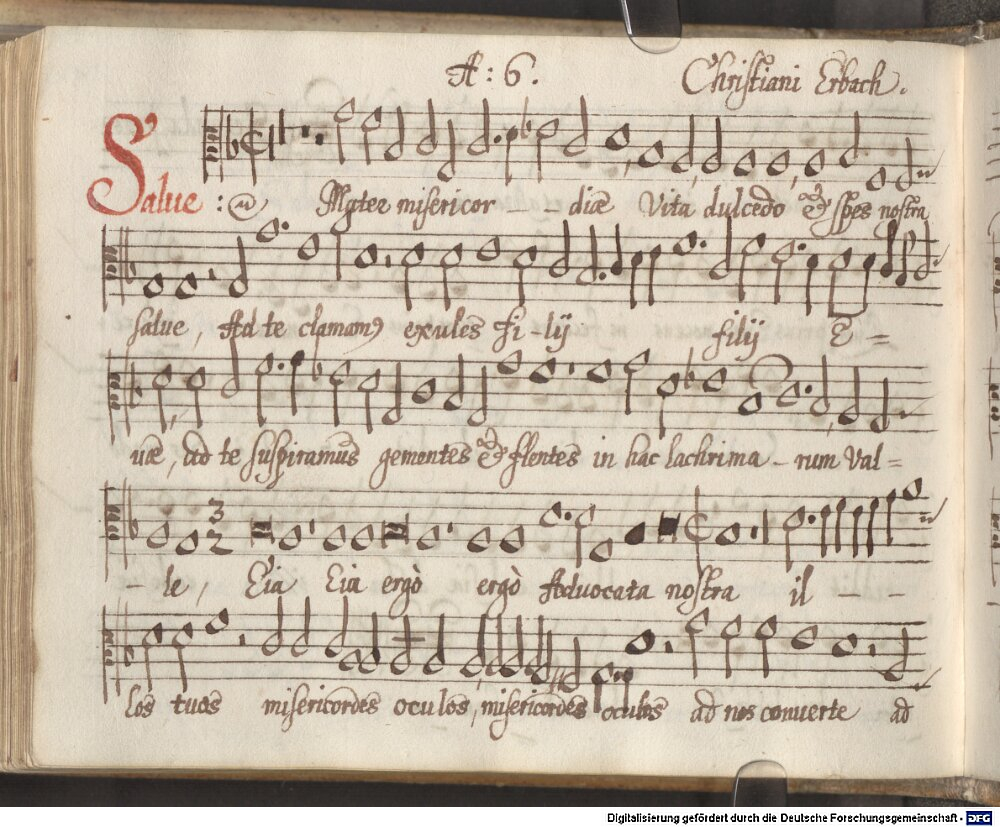 A : 6.
Christiani Erbach.
Salue : Mater misericor - - diæ Vita dulcedo & spes nostra
salue, Ad te clamam9 exules fi - lij filij E =
uæ, ad te suspiramus gementes & flentes in hac lachrima - rum Val =
- le, Eia Eia ergò ergò Aduocata nostra il - -
los tuos misericordes oculos, misericordes oculos ad nos conuerte ad
Digitalisierung gefördert durch die Deutsche Forschungsgemeinschaft - DFG